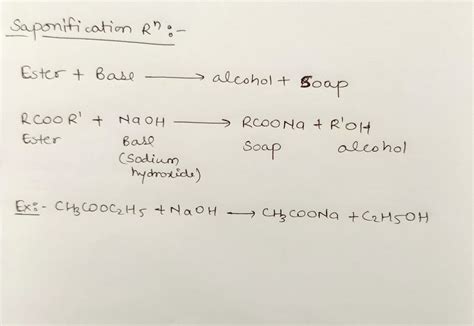 Saponification Rⁿ :-
Ester + Base ⟶ alcohol + Soap
RCOOR' + NaOH ⟶ RCOONa + R'OH
Ester Base Soap alcohol
(Sodium
hydroxide)
Ex:- CH₃COOC₂H₅ + NaOH ⟶ CH₃COONa + C₂H₅OH